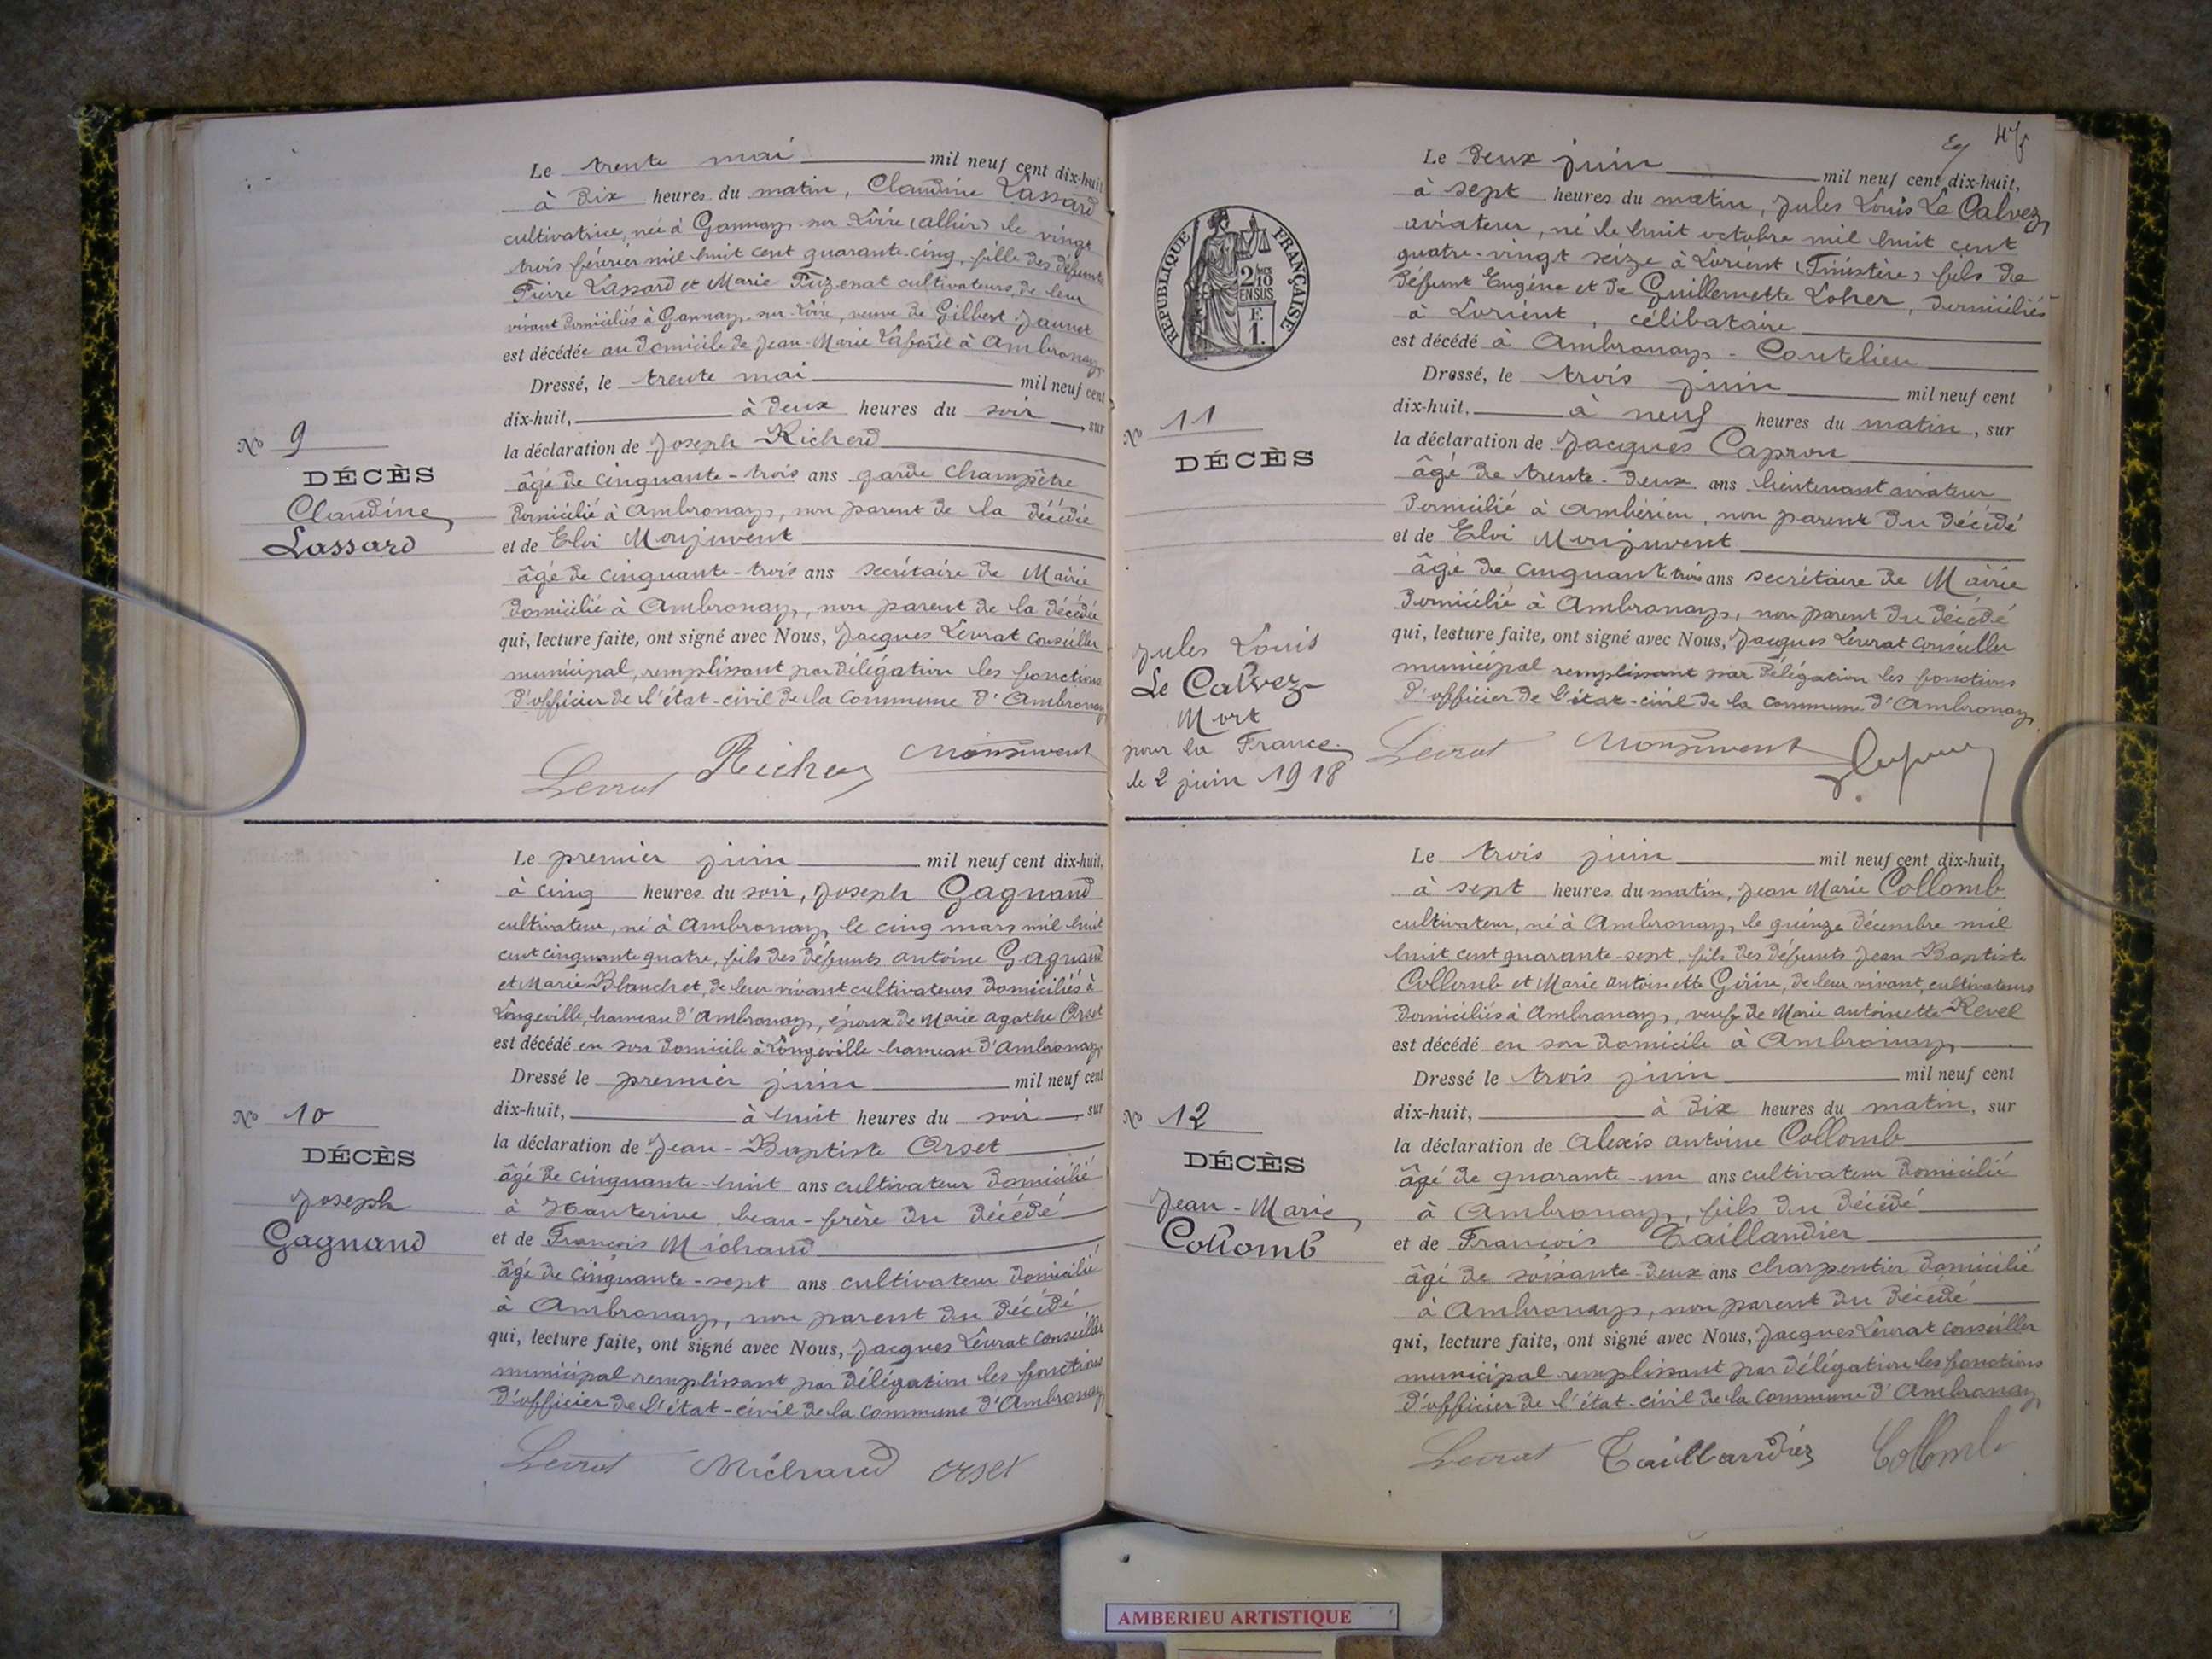 Le trente mai mil neuf cent dix-huit
à dix heures du matin, Claudine Lassard
cultivatrice, née à Gannay-sur-Loire (Allier) le vingt
trois février mil huit cent quarante-cinq, fille des défunts
Pierre Lassard et Marie cultivateurs, de leur
vivant domiciliés à Gannay-sur-Loire, veuve de Gilbert Jaunet
est décédée au domicile de Jean-Marie Laforêt à Ambronay
Dressé, le trente mai mil neuf cent
dix-huit, à deux heures du soir, sur
la déclaration de Joseph Richerd
âgé de cinquante-trois ans garde champêtre
domicilié à Ambronay, non parent de la décédée
et de Eloi Monjuvent
âgé de cinquante-trois ans secrétaire de Mairie
domicilié à Ambronay, non parent de la décédée
qui, lecture faite, ont signé avec Nous, Jacques Levrat Conseiller
municipal, remplissant par délégation les fonctions
d'officier de l'état-civil de la commune d'Ambronay
Levrat Richerd Monjuvent
No 9
DÉCÈS
Claudine
Lassard
Le premier juin mil neuf cent dix-huit,
à cinq heures du soir, Joseph Gagnaud
cultivateur, né à Ambronay, le cinq mars mil huit
cent cinquante quatre, fils des défunts Antoine Gagnaud
et Marie Blanchet, de leur vivant cultivateurs domiciliés à
Longeville, hameau d'Ambronay, époux de Marie Agathe Orset
est décédé en son domicile à Longeville hameau d'Ambronay
Dressé le premier juin mil neuf cent
dix-huit, à huit heures du soir, sur
la déclaration de Jean-Baptiste Orset
âgé de cinquante-huit ans cultivateur domicilié
à Hauterive, beau-frère du décédé
et de François Michaud
âgé de cinquante-sept ans cultivateur domicilié
à Ambronay, non parent du décédé
qui, lecture faite, ont signé avec Nous, Jacques Levrat Conseiller
municipal remplissant par délégation les fonctions
d'officier de l'état-civil de la commune d'Ambronay
Levrat Michaud Orset
No 10
DÉCÈS
Joseph
Gagnaud
Le deux juin mil neuf cent dix-huit,
à sept heures du matin, Jules Louis Le Calvez,
aviateur, né le huit octobre mil huit cent
quatre-vingt seize à Lorient (Finistère) fils de
défunt Eugène et de Guillemette Loher, domiciliés
à Lorient, célibataire
est décédé à Ambronay - Coutelieu
Dressé, le trois juin mil neuf cent
dix-huit, à neuf heures du matin, sur
la déclaration de Jacques Capron
âgé de trente-deux ans lieutenant aviateur
domicilié à Ambérieu, non parent du décédé
et de Eloi Monjuvent
âgé de cinquante trois ans secrétaire de Mairie
domicilié à Ambronay, non parent du décédé
qui, lecture faite, ont signé avec Nous, Jacques Levrat Conseiller
municipal remplissant par délégation les fonctions
d'officier de l'état-civil de la commune d'Ambronay
Levrat Monjuvent
RÉPUBLIQUE FRANÇAISE
2/10 EN SUS
F.
1.
No 11
DÉCÈS
Jules Louis
Le Calvez
Mort
pour la France
le 2 juin 1918
Le trois juin mil neuf cent dix-huit,
à sept heures du matin, Jean Marie Collomb
cultivateur, né à Ambronay, le quinze décembre mil
huit cent quarante-sept, fils des défunts Jean Baptiste
Collomb et Marie Antoinette Girin, de leur vivant, cultivateurs
domiciliés à Ambronay, veuf de Marie Antoinette Revel
est décédé en son domicile à Ambronay
Dressé le trois juin mil neuf cent
dix-huit, à dix heures du matin, sur
la déclaration de Alexis Antoine Collomb
âgé de quarante-un ans cultivateur domicilié
à Ambronay, fils du décédé
et de François Taillandier
âgé de soixante-deux ans charpentier domicilié
à Ambronay, non parent du décédé
qui, lecture faite, ont signé avec Nous, Jacques Levrat Conseiller
municipal remplissant par délégation les fonctions
d'officier de l'état-civil de la commune d'Ambronay
Levrat Taillandier Collomb
No 12
DÉCÈS
Jean-Marie
Collomb
AMBERIEU ARTISTIQUE